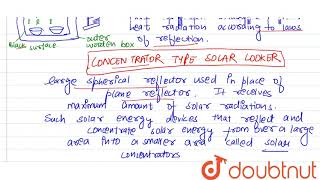 heat radiation according to laws
of reflection.
Black surface
outer
wooden box
CONCENTRATOR TYPE SOLAR COOKER
large spherical reflector used in place of
plane reflector. It receives
maximum amount of solar radiations.
Such solar energy devices that reflect and
concentrate solar energy from over a large
area into a smaller area called solar
concentrators
doubtnut